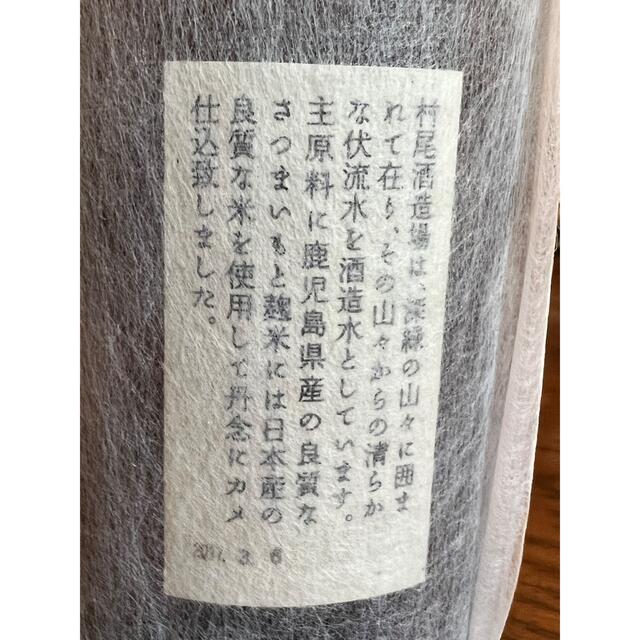 村尾酒造場は、深緑の山々に囲ま
れて在り、その山々からの清らか
な伏流水を酒造水としています。
主原料に鹿児島県産の良質な
さつまいもと麹米には日本産の
良質な米を使用して丹念にカメ
仕込致しました。
3. 6